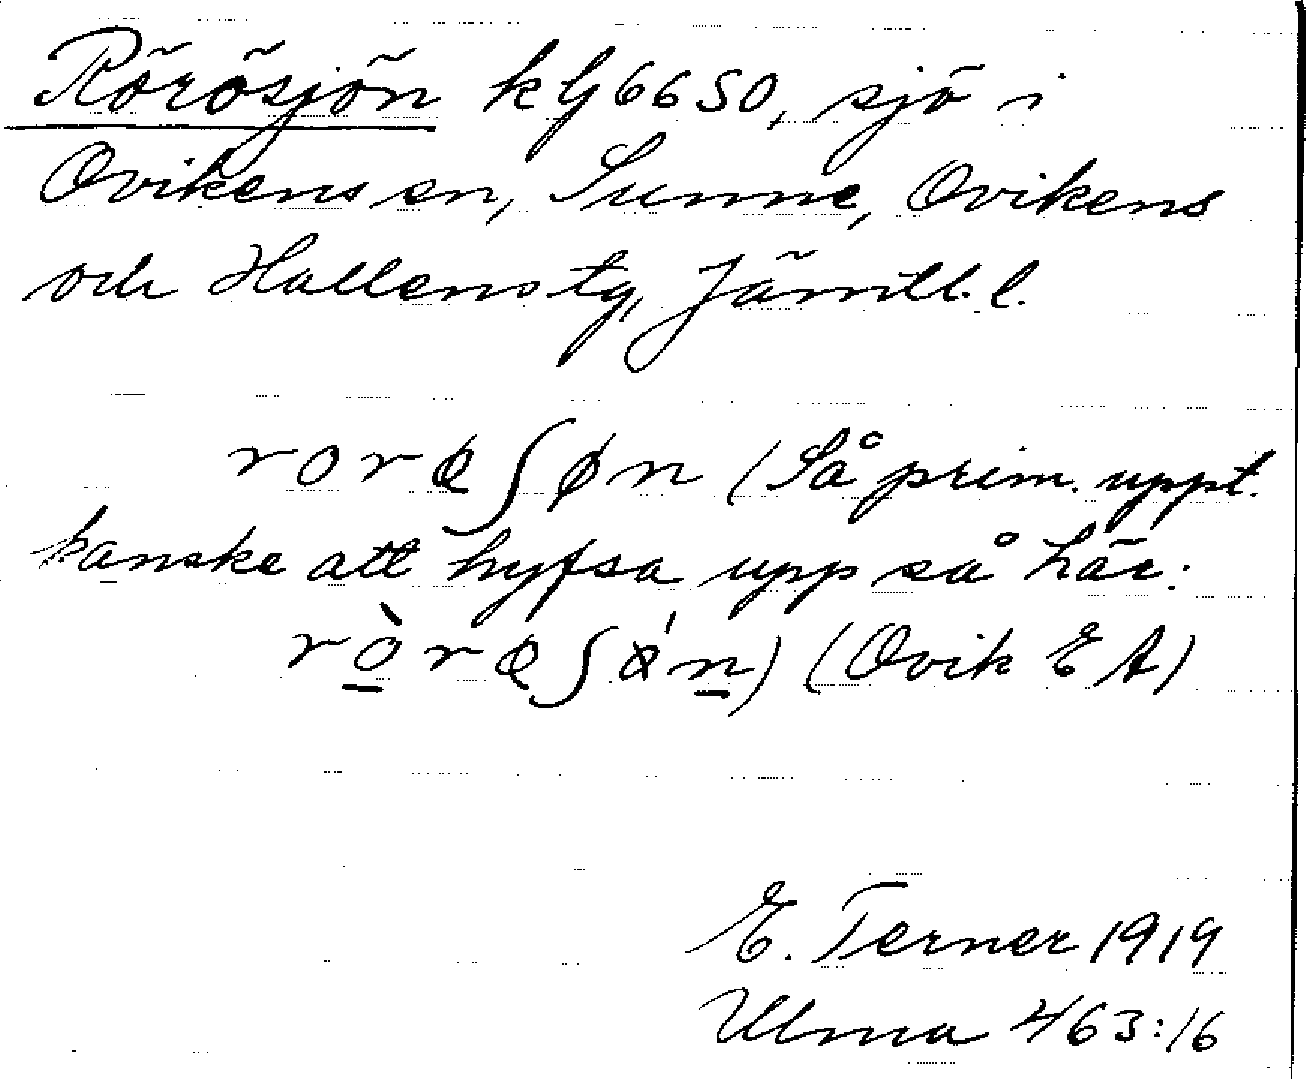 Rörösjön kG6650, sjö i
Ovikens sn, Sunne, Ovikens
och Hallens tg, Jämtl. l.
rorɵʃøn (Så prim. uppt.
kanske att hyfsa upp så här:
ròrɵʃǿn) (Ovik E A)
E. Terner 1919
Ulma 463:16